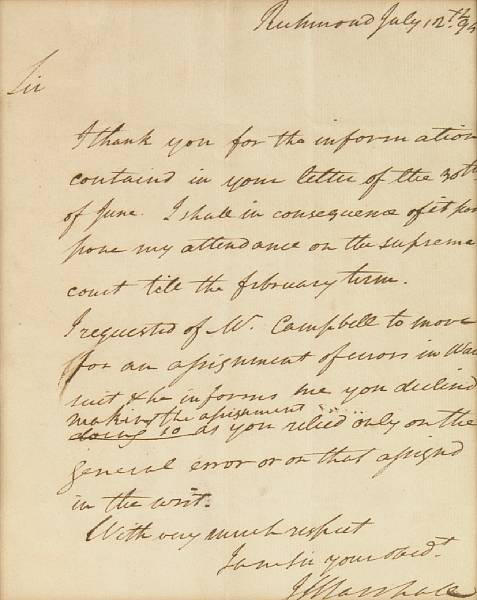 Richmond July 12th 94
Sir
I thank you for the information
containd in your letter of the 30th
of June. I shall in consequence of it pos
pone my attendance on the supreme
court till the february term.
I requested of Mr. Campbell to move
for an assignment of errors in
suit & he informs me you declind
making the assignment
doing so as you relied only on the
general error or on that assignd
in the writ.
With very much respect
I am Sir your obed.t
J Marshall